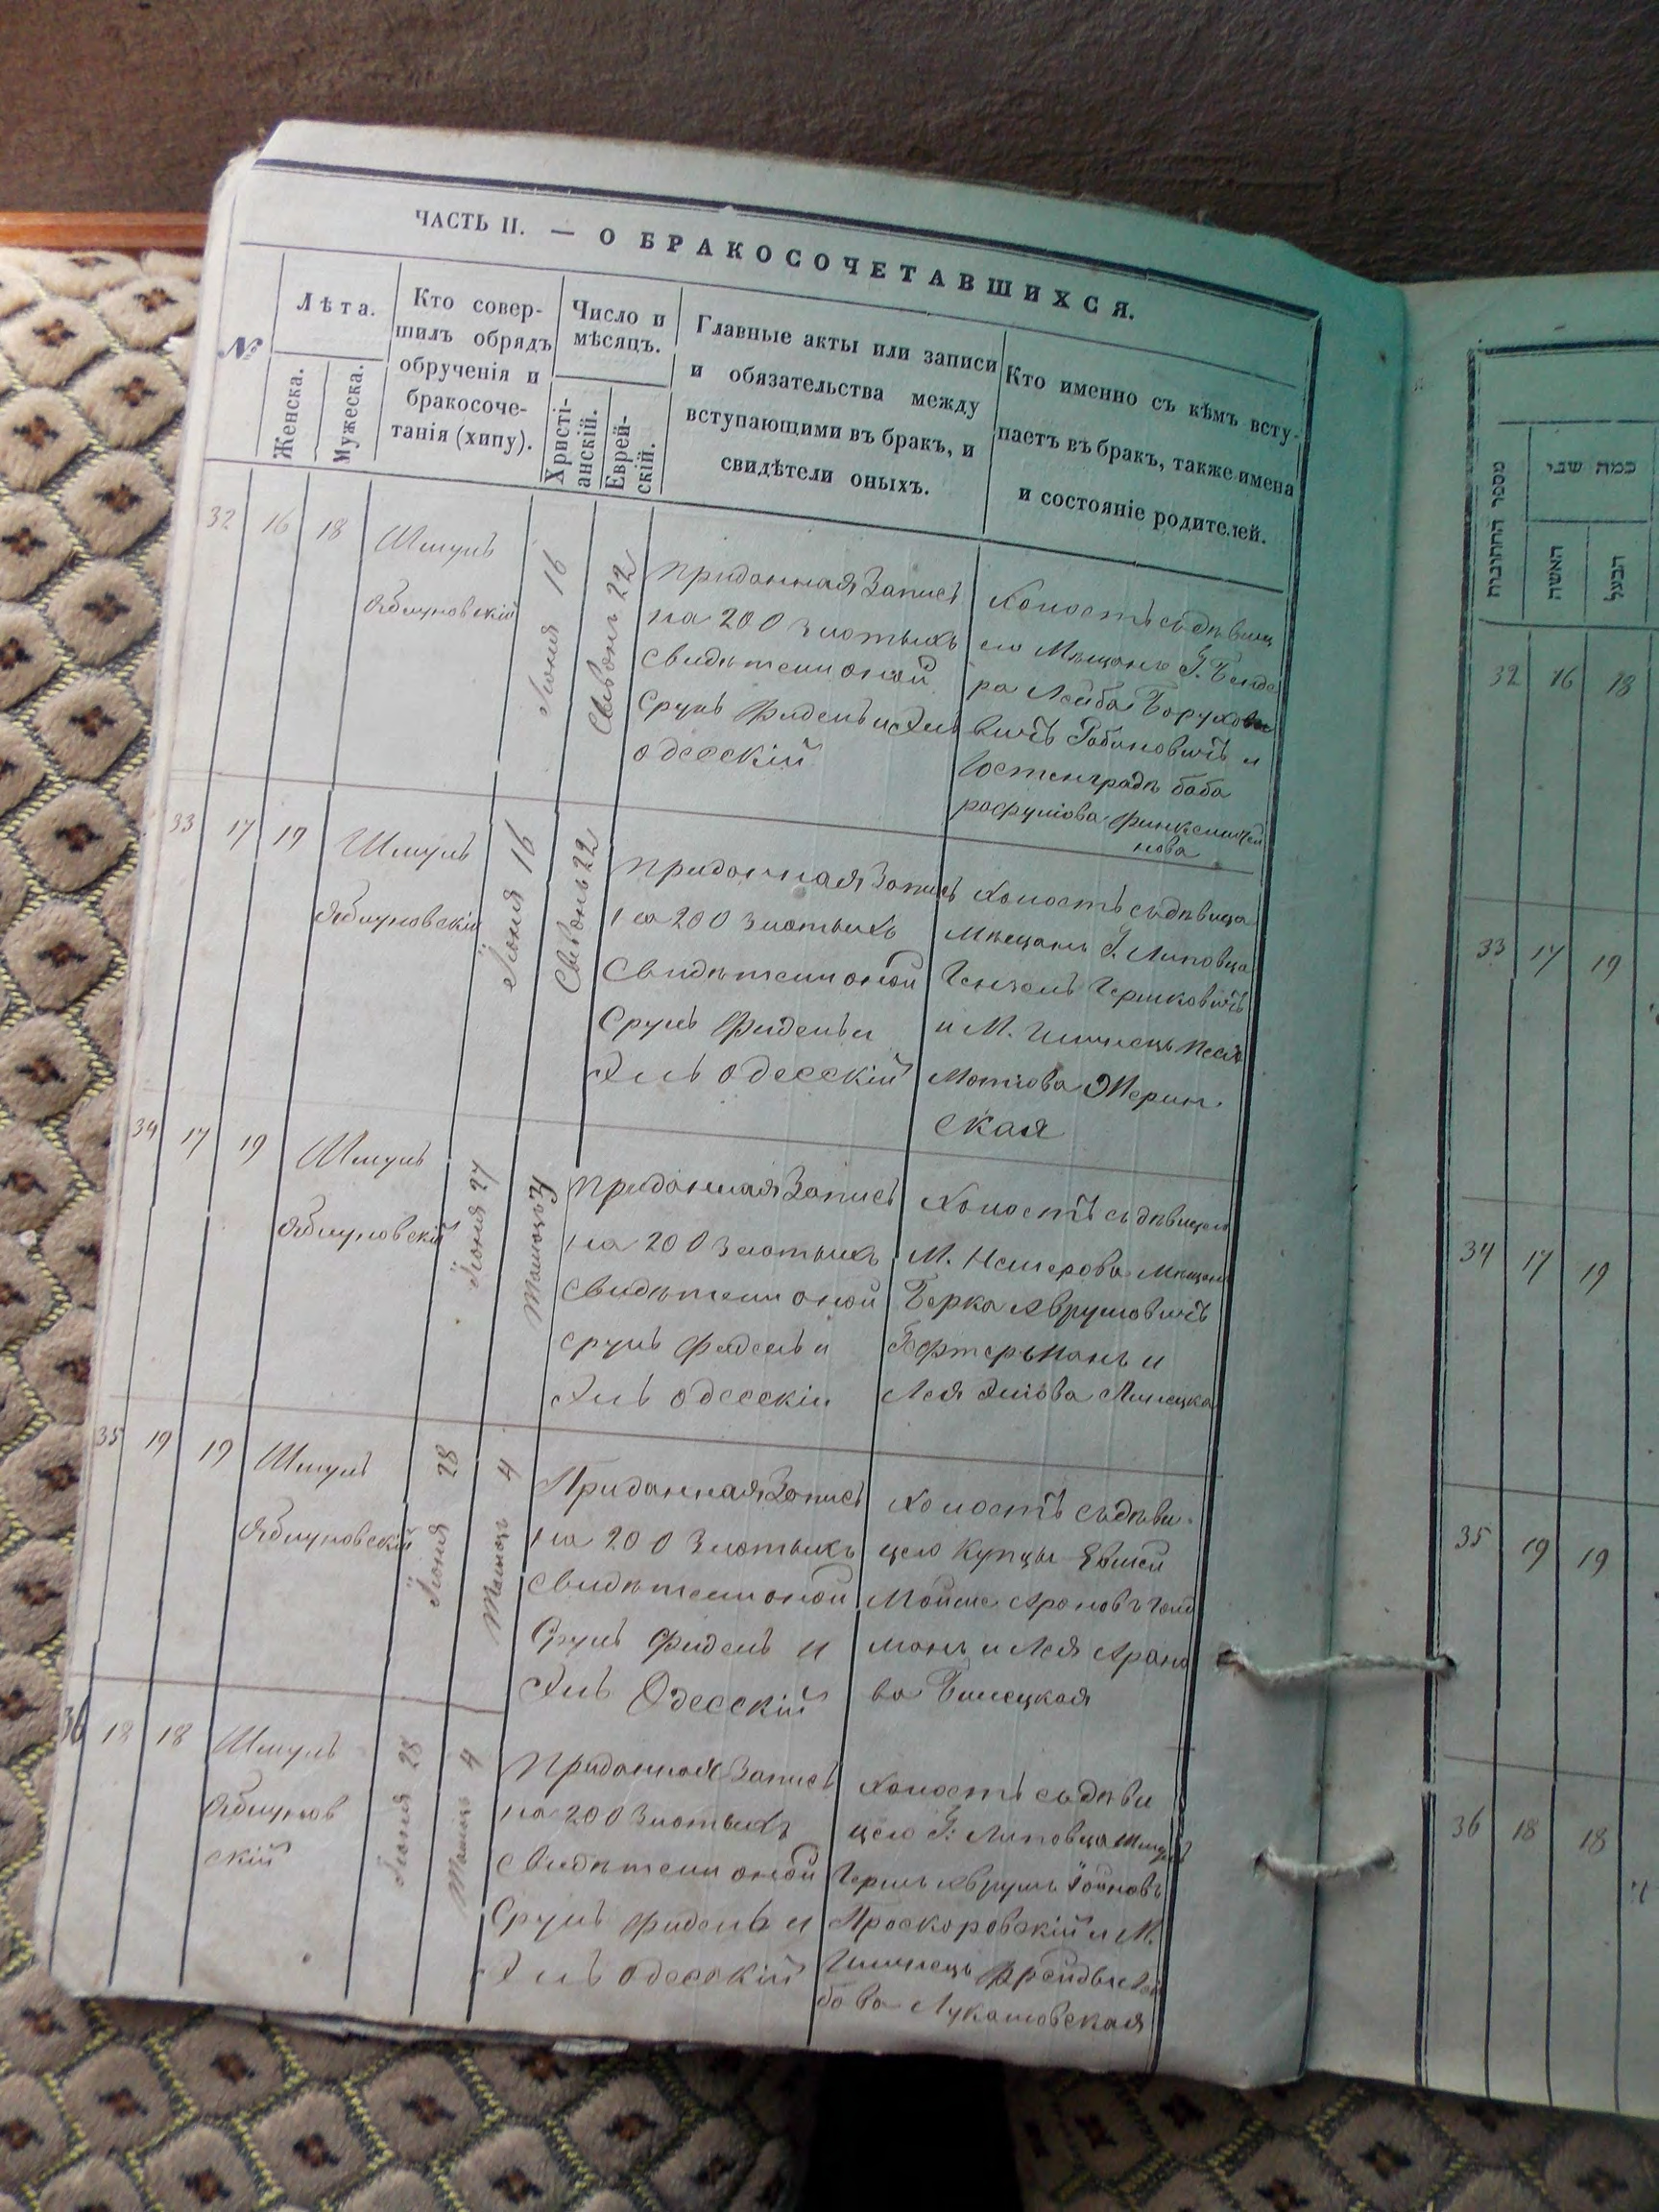 ЧАСТЬ II. — О БРАКОСОЧЕТАВШИХСЯ.
№
Лѣта.
Женска.
Мужеска.
Кто совер-
шилъ обрядъ
обрученія и
бракосоче-
танія (хипу).
Число и
мѣсяцъ.
Христі-
анскій.
Еврей-
скій.
Главные акты или записи
и обязательства между
вступающими въ бракъ, и
свидѣтели оныхъ.
Кто именно съ кѣмъ всту-
паетъ въ бракъ, также имена
и состояніе родителей.
32 16 18
Шмуль
Яблуновскій
Іюня 16
Сивонъ 22
Приданная Запись
на 200 Злотыхъ
свидѣтели оной
Сруль Фидель и Эль
одесскій
Холостъ съ дѣвиц
ею Мѣщане Г. Бенде
ра Лейба Борухово
вичъ Рабиновичъ и
33 17 19
Шмуль
Яблуновскій
Іюня 16
Сивонъ 22
Приданная Запись
на 200 Злотыхъ
Свидѣтели оной
Сруль Фидель и
Эль одесскій
Холостъ съ дѣвица
Мѣщане Г. Липовца
Гершковичъ
и М.
ская
34 17 19
Шмуль
Яблуновскій
Іюня 27
Тамозъ 4
Приданная Запись
на 200 Злотыхъ
Свидѣтели оной
Сруль Фидель и
Эль одесскій
Холостъ съ дѣвицею
М. Немерова Мѣщане
Берка Аврумовичъ
и
Лея
35 19 19
Шмуль
Яблуновскій
Іюня 28
Тамозъ 4
Приданная Запись
на 200 Злотыхъ
Свидѣтели оной
Сруль Фидель и
Эль Одесскій
Холостъ съ дѣви-
цею Купцы
Мойше Ароновъ Гольд
манъ и Лея Арано
ва Билецкая
36 18 18
Шмуль
Яблунов
скій
Іюня 28
Тамозъ 4
Приданная Запись
на 200 Злотыхъ
Свидѣтели оной
Сруль Фидель и
Эль одесскій
Холостъ съ дѣви
цею Г. Липовца
Проскоровскій и М.
бова Лукашовская
מספר החתונות
כמה שני
האשה
הבעל
32 16 18
33 17 19
34 17 19
35 19 19
36 18 18